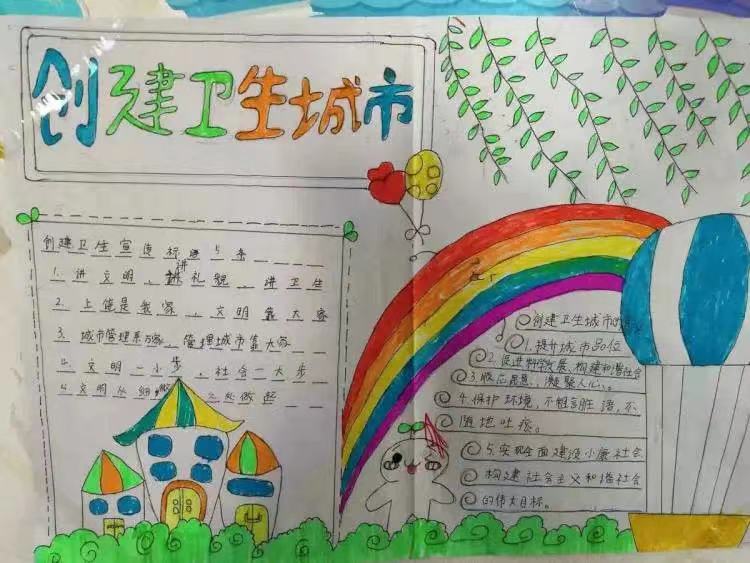 创建卫生城市
创建卫生宣传标语5条
1.讲文明,讲礼貌,讲卫生
2.上饶是我家,文明靠大家
3.城市管理系万家,管理城市靠大家
4.文明一小步,社会一大步
4.文明从细微之处做起
创建卫生城市的
1.提升城市品位
2.促进科学发展,构建和谐社会
3.顺应民意,凝聚人心。
4.保护环境,不粗言脏语,不
随地吐痰。
5.实现全面建设小康社会
构建社会主义和谐社会
的伟大目标。